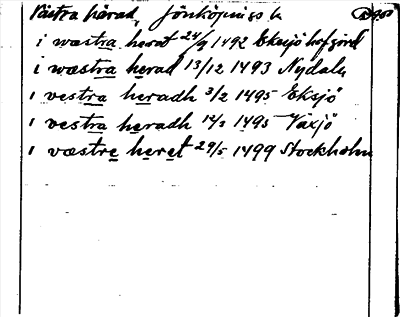 Västra härad, Jönköpings l.
i wæstra herat 24/9 1492 Eksjö hofgård
i wæstra herad 13/12 1493 Nydala
i vestra heradh 3/2 1495 Eksjö
i vestra heradh 14/2 1495 Växjö
i væstre heret 29/5 1499 Stockholm